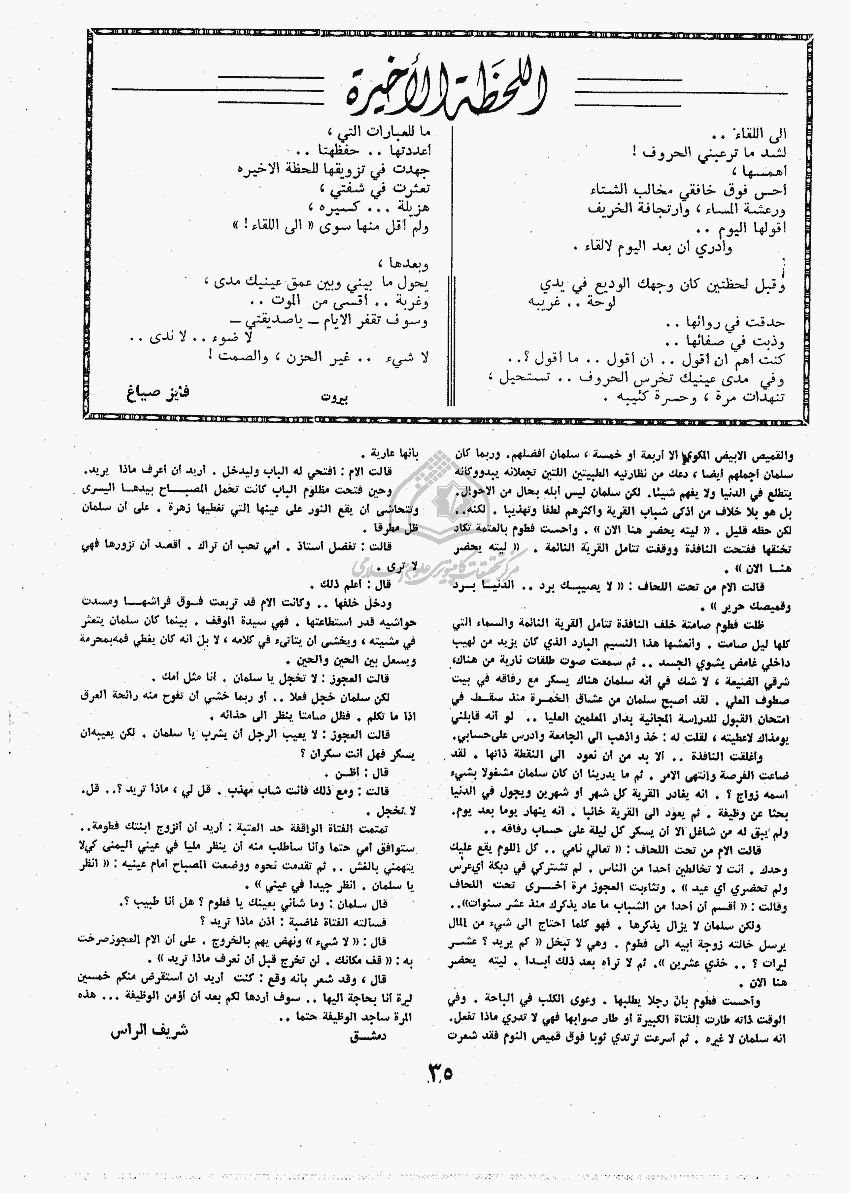 اللحظة الأخيرة
الى اللقاء ..
لشد ما ترعبني الحروف !
أهمسها ،
أحس فوق خافقي مخالب الشتاء
ورعشة المساء ، وارتجافة الخريف
أقولها اليوم ..
وأدري ان بعد اليوم لالقاء .
وقبل لحظتين كان وجهك الوديع في يدي
لوحة .. غريبه
حدقت في روائها ..
وذبت في صفائها ..
كنت أهم ان أقول .. ان أقول .. ما أقول ؟..
وفي مدى عينيك تخرس الحروف .. تستحيل ،
تنهدات مرة ، وحسرة كئيبه .
ما للعبارات التي ،
أعددتها .. حفظتها ..
جهدت في تزويقها للحظة الاخيره
تعثرت في شفتي ،
هزيلة ... كسيره ،
ولم أقل منها سوى « الى اللقاء ! »
وبعدها ،
يحول ما بيني وبين عمق عينيك مدى ،
وغربة .. أقسى من الموت ..
وسوف تقفر الايام – ياصديقتي –
لا ضوء .. لا ندى ..
لا شيء .. غير الحزن ، والصمت !
بيروت فايز صياغ
والقميص الابيض المكوي الا أربعة او خمسة ، سلمان أفضلهم. وربما كان
سلمان أجملهم أيضا ، دعك من نظارتيه الطبيتين اللتين تجعلانه يبدووكانه
يتطلع في الدنيا ولا يفهم شيئا. لكن سلمان ليس ابله بحال من الاحوال.
بل هو بلا خلاف من اذكى شباب القرية وأكثرهم لطفا وتهذيبا . لكنه..
لكن حظه قليل . « ليته يحضر هنا الان » . وأحست فطوم بالعتمة تكاد
تخنقها ففتحت النافذة ووقفت تتامل القرية النائمة . « ليته يحضر
هنا الان » .
قالت الام من تحت اللحاف : « لا يصيبك برد .. الدنيا برد
وقميصك حرير » .
ظلت فطوم صامتة خلف النافذة تتامل القرية النائمة والسماء التي
كلها ليل صامت . وانعشها هذا النسيم البارد الذي كان يزيد من لهيب
داخلي غامض يشوي الجسد .. ثم سمعت صوت طلقات نارية من هناك،
شرقي الضيعة ، لا شك في انه سلمان هناك يسكر مع رفاقه في بيت
صطوف العلي . لقد أصبح سلمان من عشاق الخمرة منذ سقط في
امتحان القبول للدراسة المجانية بدار المعلمين العليا .. لو انه قابلني
يومذاك لاعطيته ، لقلت له : خذ واذهب الى الجامعة وادرس على حسابي.
وأغلقت النافذة .. ألا بد من أن نعود الى النقطة ذاتها . لقد
ضاعت الفرصة وانتهى الامر . ثم ما يدرينا ان كان سلمان مشغولا بشيء
اسمه زواج ؟ . انه يغادر القرية كل شهر أو شهرين ويجول في الدنيا
بحثا عن وظيفة . ثم يعود الى القرية خائبا . انه ينهار يوما بعد يوم.
ولم يبق له من شاغل الا أن يسكر كل ليلة على حساب رفاقه ..
قالت الام من تحت اللحاف : « تعالي نامي .. كل اللوم يقع عليك
وحدك . أنت لا تخالطين أحدا من الناس . لم تشتركي في دبكة أي عرس
ولم تحضري أي عيد » . وتثاءبت العجوز مرة أخرى تحت اللحاف
وقالت : « أقسم أن أحدا من الشباب ما عاد يذكرك منذ عشر سنوات»..
ولكن سلمان لا يزال يذكرها . فهو كلما احتاج الى شيء من المال
يرسل خالته زوجة أبيه الى فطوم . وهي لا تبخل « كم يريد ؟ عشر
ليرات ؟ .. خذي عشرين ». ثم لا تراه بعد ذلك أبدا . ليته يحضر
هنا الان .
وأحست فطوم بأن رجلا يطلبها . وعوى الكلب في الباحة . وفي
الوقت ذاته طارت الفتاة الكبيرة أو طار صوابها فهي لا تدري ماذا تفعل.
انه سلمان لا غيره . ثم أسرعت ترتدي ثوبا فوق قميص النوم فقد شعرت
بأنها عارية .
قالت الام : افتحي له الباب وليدخل . أريد أن أعرف ماذا يريد.
وحين فتحت مظلوم الباب كانت تحمل المصباح بيدها اليسرى
وتتحاشى أن يقع النور على عينها التي تغطيها زهرة . على أن سلمان
ظل مطرقا .
قالت : تفضل أستاذ . أمي تحب أن تراك . أقصد أن تزورها فهي
لا ترى .
قال : أعلم ذلك .
ودخل خلفها .. وكانت الام قد تربعت فوق فراشها ومسدت
حواشيه قدر استطاعتها . فهي سيدة الموقف . بينما كان سلمان يتعثر
في مشيته ، ويخشى أن يتاتىء في كلامه ، لا بل انه كان يغطي فمه بمحرمة
ويسعل بين الحين والحين .
قالت العجوز : لا تخجل يا سلمان . أنا مثل أمك .
لكن سلمان خجل فعلا .. أو ربما خشي أن تفوح منه رائحة العرق
اذا ما تكلم . فظل صامتا ينظر الى حذائه .
قالت العجوز : لا يعيب الرجل أن يشرب يا سلمان . لكن يعيبه ان
يسكر فهل أنت سكران ؟
قال : أظن .
قالت : ومع ذلك فأنت شاب مهذب . قل لي ، ماذا تريد ؟.. قل.
لا تخجل .
تمتمت الفتاة الواقفة حد العتبة : أريد أن أتزوج ابنتك فطومة..
ستوافق أمي حتما وأنا ساطلب منه أن ينظر مليا في عيني اليمنى كي لا
يتهمني بالغش .. ثم تقدمت نحوه ووضعت المصباح أمام عينيه : « انظر
يا سلمان . انظر جيدا في عيني » .
قال سلمان : وما شأني بعينك يا فطوم ؟ هل أنا طبيب ؟.
فسألته الفتاة غاضبة : اذن ماذا تريد ؟
قال : « لا شيء » ونهض يهم بالخروج . على أن الام العجوز صرخت
به : « قف مكانك . لن تخرج قبل أن نعرف ماذا تريد » .
قال ، وقد شعر بأنه وقع : كنت أريد أن أستقرض منكم خمسين
ليرة أنا بحاجة اليها .. سوف أردها لكم بعد أن أؤمن الوظيفة ... هذه
المرة ساجد الوظيفة حتما ..
دمشق شريف الراس
٣٥